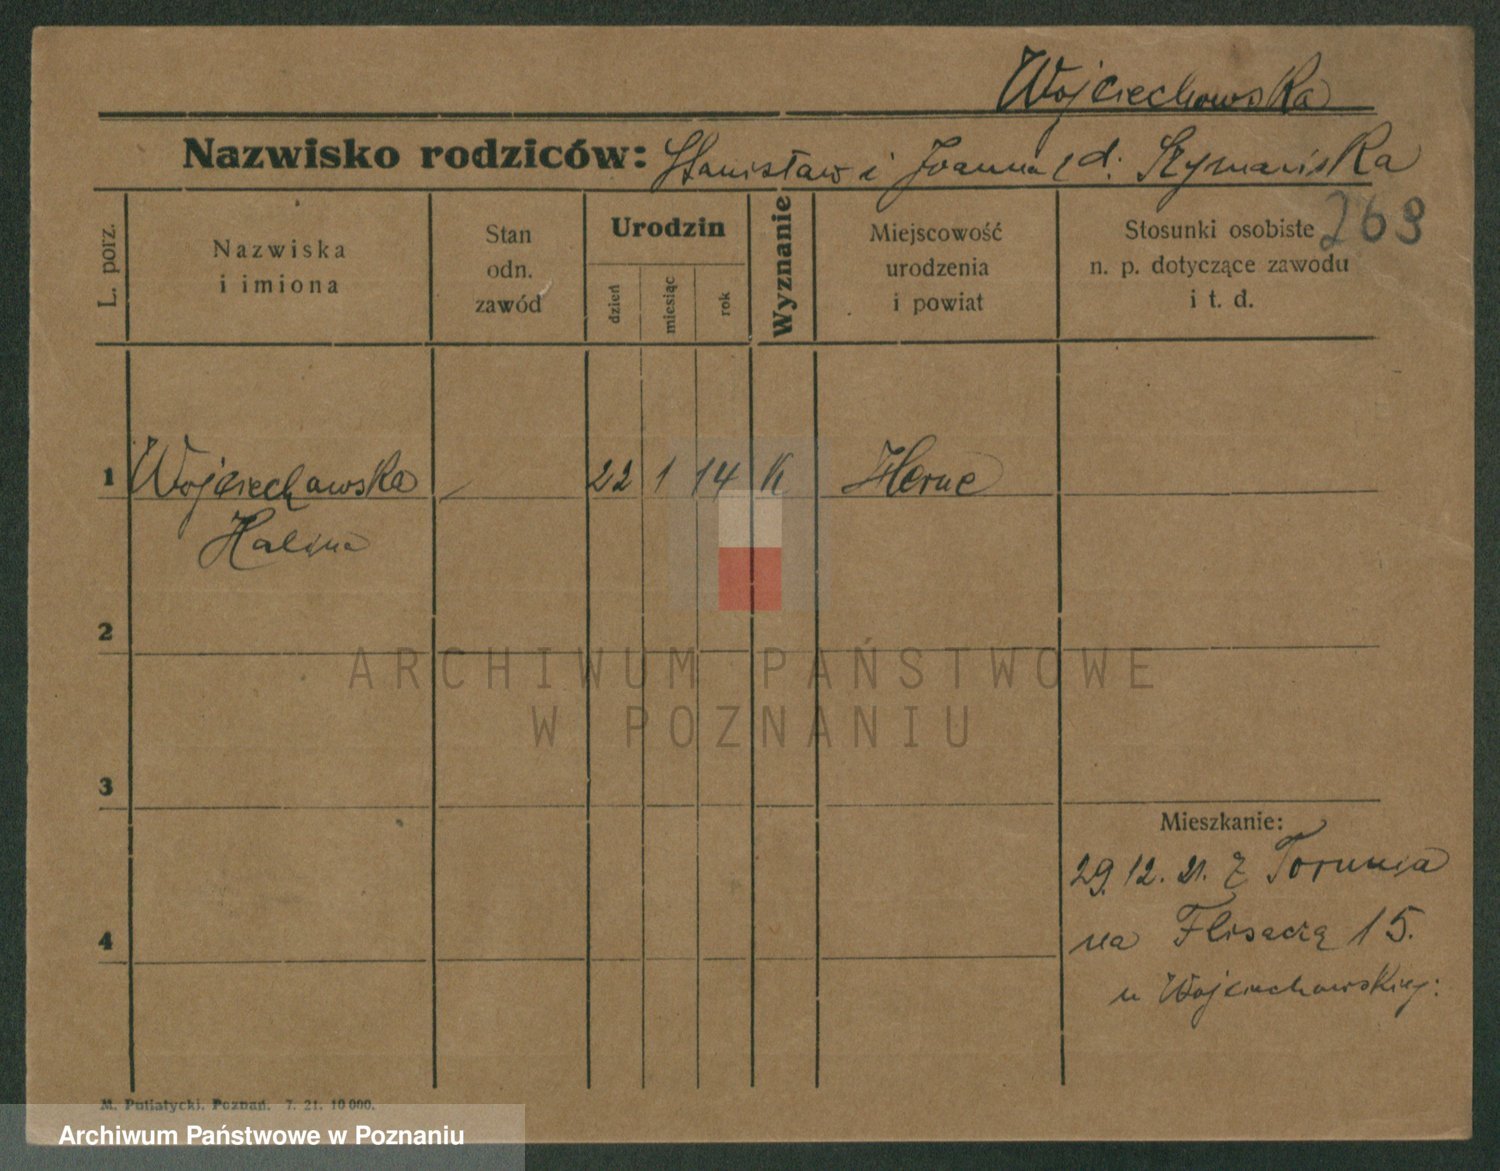 Wojciechowska
Nazwisko rodziców: Stanisław i Joanna d. Szymańska
269
L. porz.
Nazwiska
i imiona
Stan
odn.
zawód
Urodzin
dzień
miesiąc
rok
Wyznanie
Miejscowość
urodzenia
i powiat
Stosunki osobiste
n. p. dotyczące zawodu
i t. d.
1 Wojciechowska - 22 1 14 K Herne
Halina
2
3
4
Mieszkanie:
29.12.21. z Torunia
na Flisaczą 15.
u Wojciechowskiej:
M. Putiatycki. Poznań. 7. 21. 10 000.
ARCHIWUM PAŃSTWOWE
W POZNANIU
Archiwum Państwowe w Poznaniu